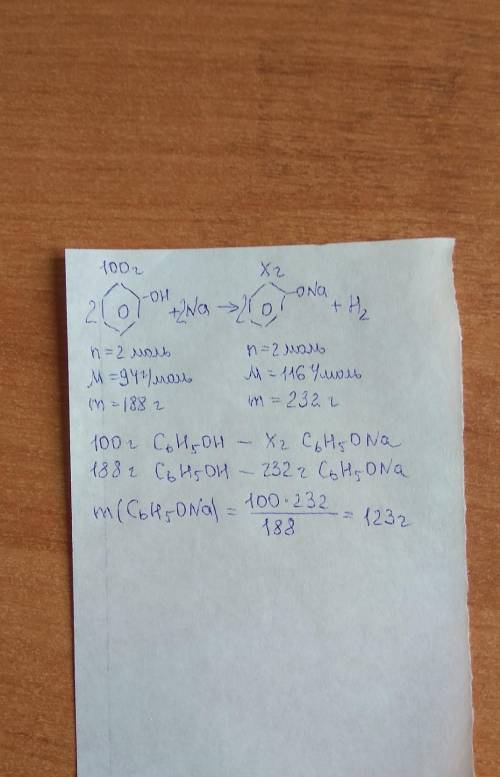 100г Xг
2 -OH + 2Na → 2 -ONa + H2
n = 2 моль n = 2 моль
M = 94 г/моль M = 116 г/моль
m = 188 г m = 232 г
100г C6H5OH – Xг C6H5ONa
188г C6H5OH – 232г C6H5ONa
m(C6H5ONa) = 100·232 / 188 = 123г